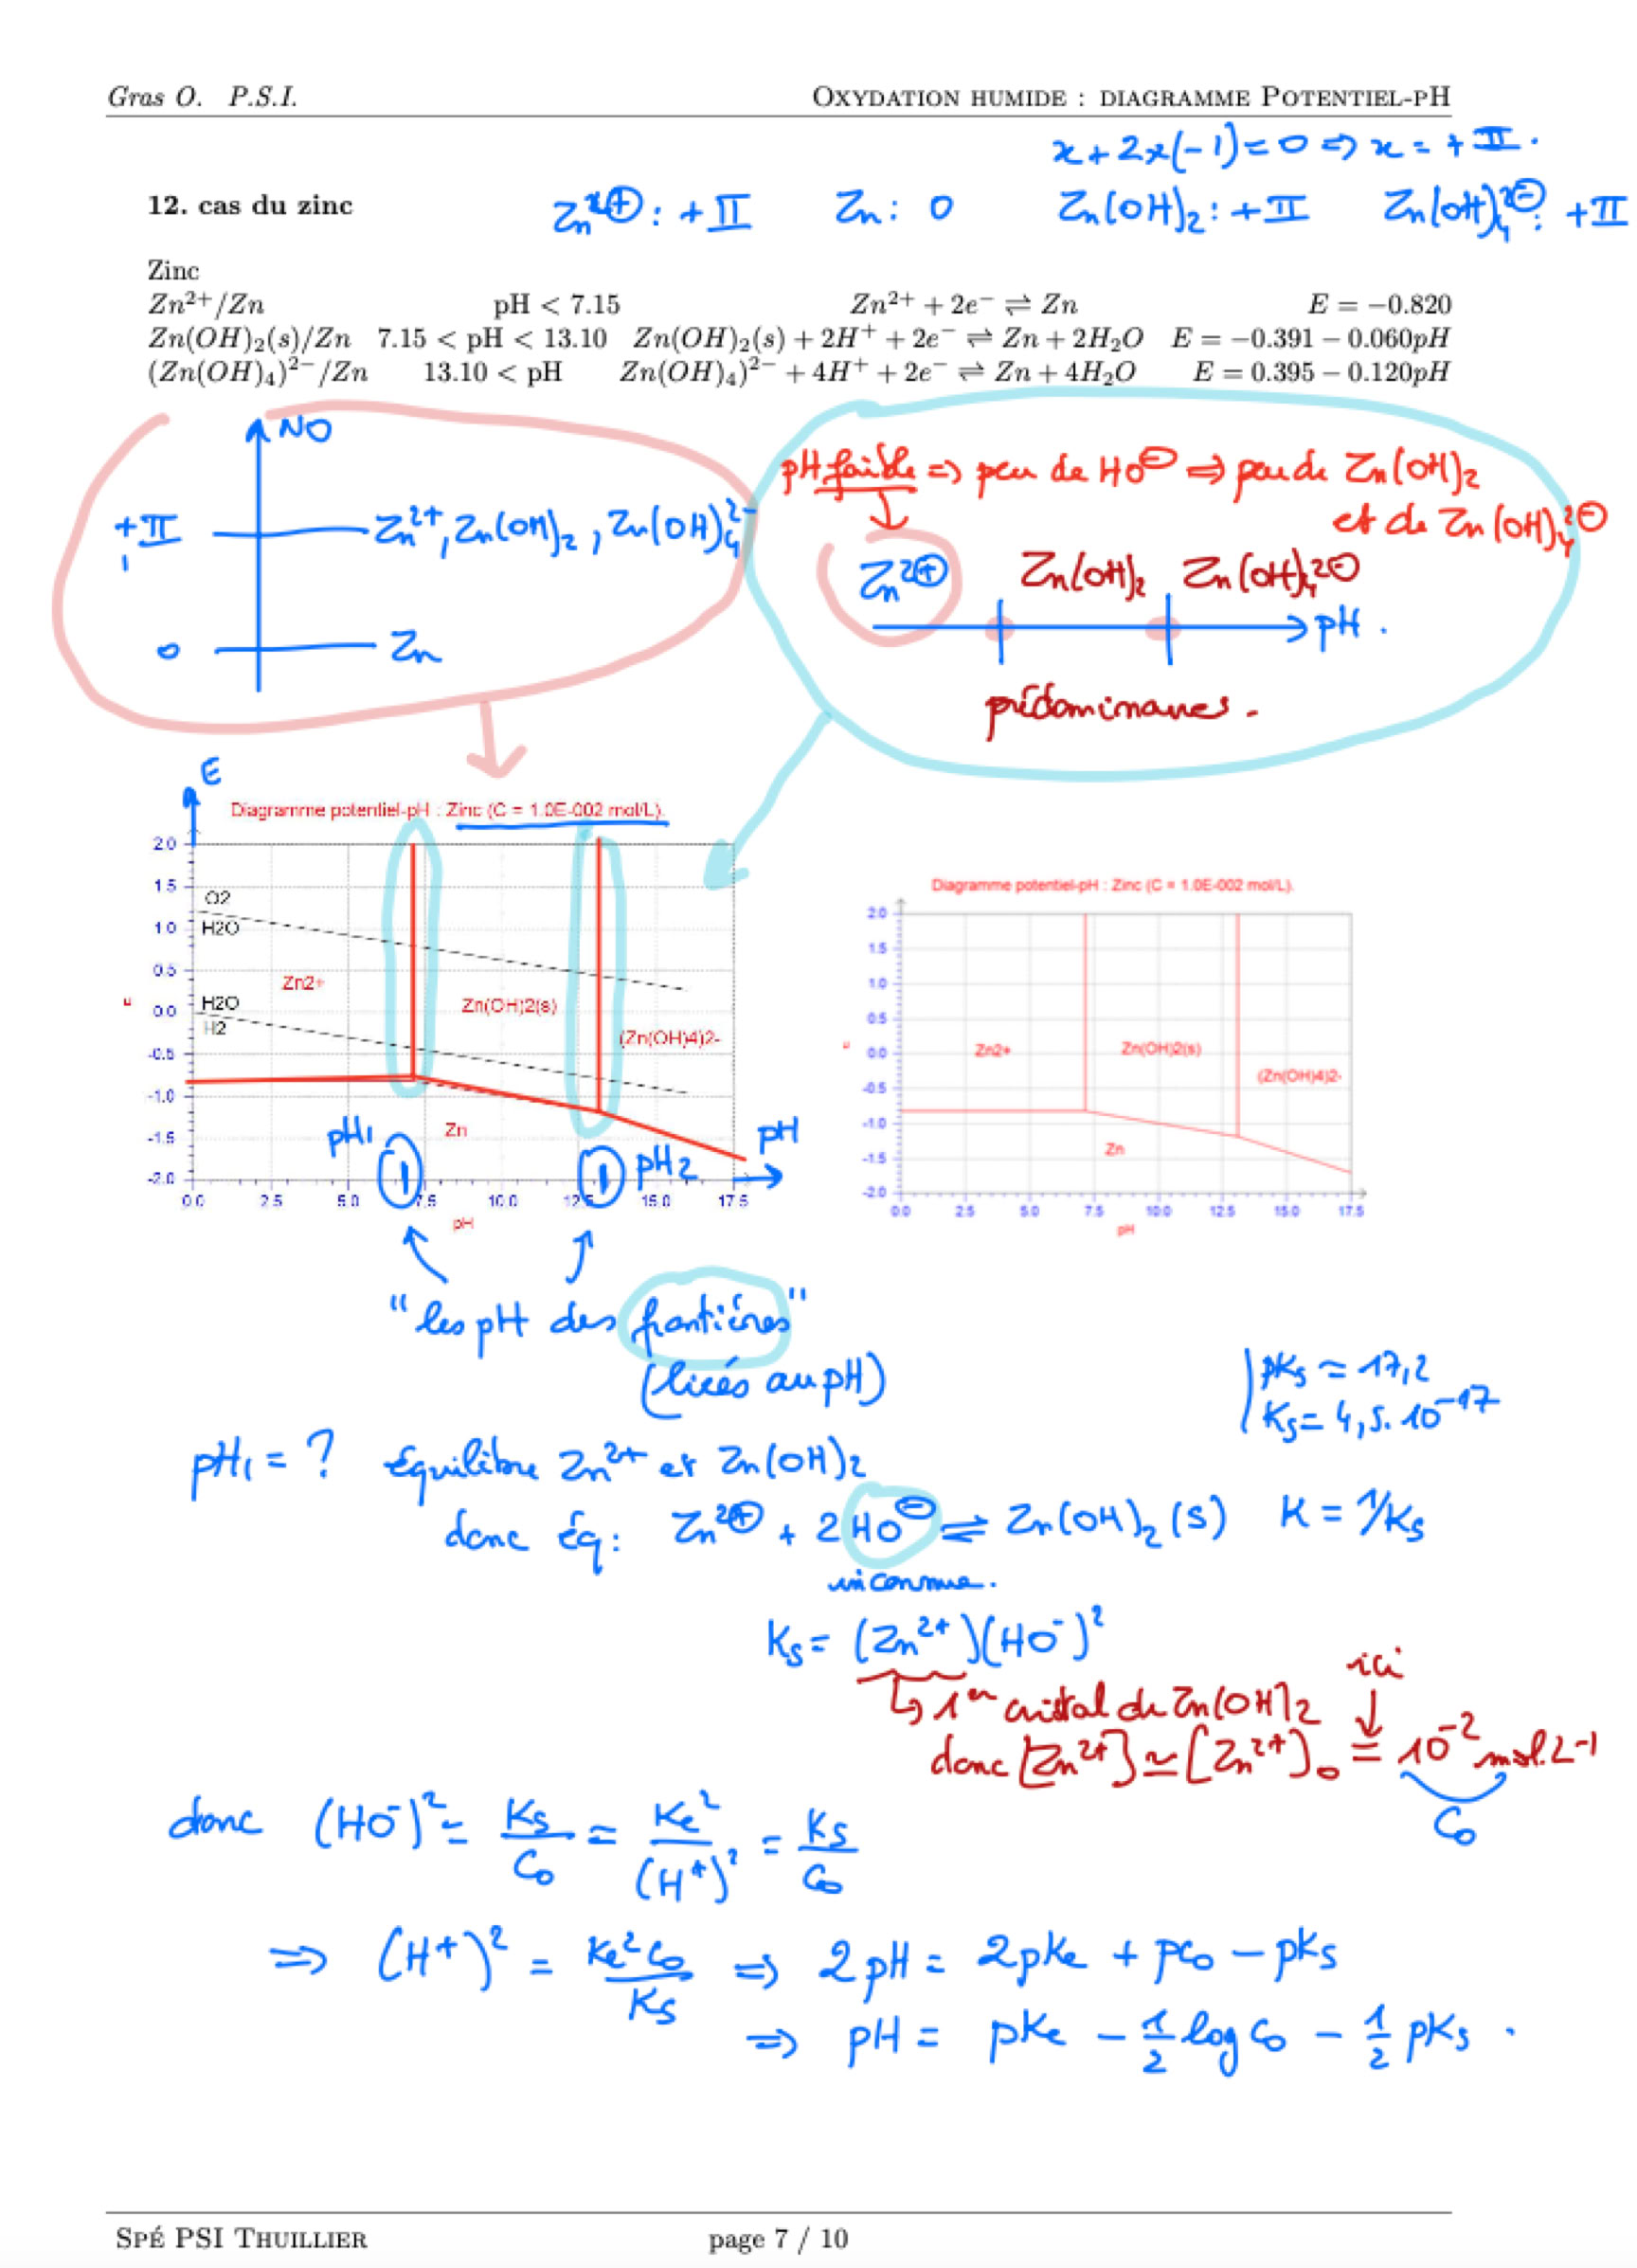 Gras O. P.S.I. OXYDATION HUMIDE : DIAGRAMME POTENTIEL-PH
x + 2x(-1) = 0 => x = + II.
12. cas du zinc Zn²⊕ : + II Zn : 0 Zn(OH)₂ : + II Zn(OH)₄²⊖ : + II
Zinc
Zn²⁺/Zn pH < 7.15 Zn²⁺ + 2e⁻ ⇌ Zn E = −0.820
Zn(OH)₂(s)/Zn 7.15 < pH < 13.10 Zn(OH)₂(s) + 2H⁺ + 2e⁻ ⇌ Zn + 2H₂O E = −0.391 − 0.060pH
(Zn(OH)₄)²⁻/Zn 13.10 < pH Zn(OH)₄)²⁻ + 4H⁺ + 2e⁻ ⇌ Zn + 4H₂O E = 0.395 − 0.120pH
NO
+II Zn²⁺, Zn(OH)₂, Zn(OH)₄²⁻
0 Zn
pH faible => peu de HO⊖ => peu de Zn(OH)₂
et de Zn(OH)₄²⊖
Zn²⊕ Zn(OH)₂ Zn(OH)₄²⊖
pH.
prédominances.
E
Diagramme potentiel-pH : Zinc (C = 1.0E-002 mol/L).
2.0
1.5
O2
1.0 H2O
0.5
Zn2+
Zn(OH)2(s)
H2O
0.0
H2
(Zn(OH)4)2-
-0.5
-1.0
Zn
-1.5
-2.0
pH₁ pH₂ pH
0.0 2.5 5.0 7.5 10.0 12.5 15.0 17.5
pH
Diagramme potentiel-pH : Zinc (C = 1.0E-002 mol/L).
2.0
1.5
1.0
0.5
0.0
-0.5
-1.0
-1.5
-2.0
Zn2+ Zn(OH)2(s) (Zn(OH)4)2-
Zn
0.0 2.5 5.0 7.5 10.0 12.5 15.0 17.5
pH
"les pH des frontières"
(liées au pH)
pKs ≃ 17,2
Ks = 4,5.10⁻¹⁷
pH₁ = ? équilibre Zn²⁺ et Zn(OH)₂
donc éq : Zn²⊕ + 2HO⊖ ⇌ Zn(OH)₂(s) K = 1/Ks
inconnue.
Ks = (Zn²⁺)(HO⁻)²
ici
↳ 1er cristal de Zn(OH)₂
donc [Zn²⁺] ≃ [Zn²⁺]₀ = 10⁻² mol.L⁻¹
C₀
donc (HO⁻)² = Ks/C₀ = Ke²/(H⁺)² = Ks/C₀
=> (H⁺)² = Ke²C₀/Ks => 2pH = 2pKe + pC₀ − pKs
=> pH = pKe − 1/2 log C₀ − 1/2 pKs.
SPÉ PSI THUILLIER page 7 / 10